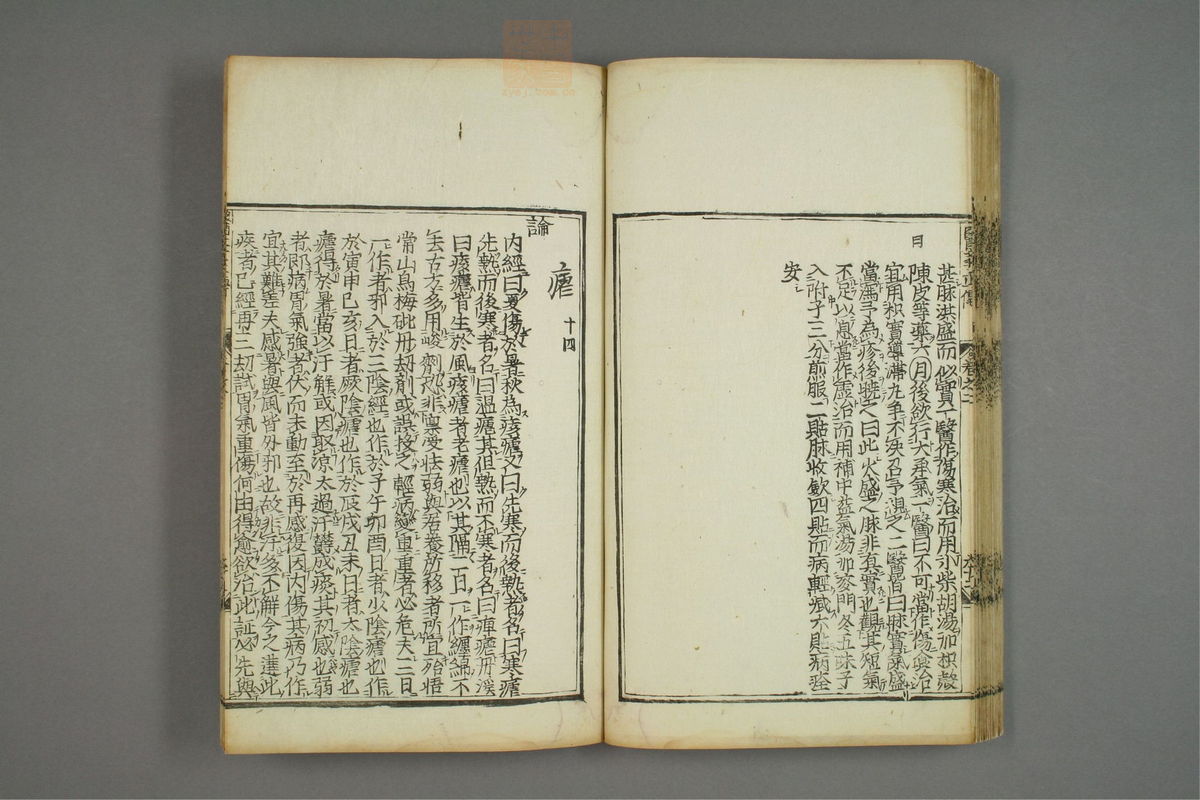 其脉洪盛而似實一醫作傷寒治而用小柴胡湯加枳殼
陳皮等藥六
日
後欲行大承氣一醫曰不可當作傷食治
宜用枳實導滯丸爭不決召予視之二醫皆曰脉實氣盛
當瀉予為診後曉之曰此火盛之脉非有實也觀其短氣
不足以息當作虚治而用補中益氣湯加麥門冬五味子
入附子三分煎服二貼脉收歛四貼而病輕減六貼病全
安
瘧 十四
論
内經曰夏傷於暑秋為痎瘧又曰先寒而後熱者名曰寒瘧
先熱而後寒者名曰温瘧其但熱而不寒者名曰癉瘧丹溪
曰痎瘧皆生於風痎瘧者老瘧也以其隔二日一作纏綿不
去古方多用峻劑恐非禀受怯弱與居養所移者所宜殆悟
常山烏梅砒丹刼劑或誤投之輕病變重重者必危夫三日
一作者邪入於三陰經也作於子午卯酉日者少陰瘧也作
於寅申巳亥日者厥陰瘧也作於辰戌丑未日者太陰瘧也
瘧得於暑當以汗解或因取凉太過汗欝成痰其初感也弱
者即病胃氣強者伏而未動至於再感復因内傷其病乃作
宜其難差夫感暑與風皆外邪也故非汗多不解今之達此
疾者已經再三刼試胃氣重傷何由得愈欲治此証必先與